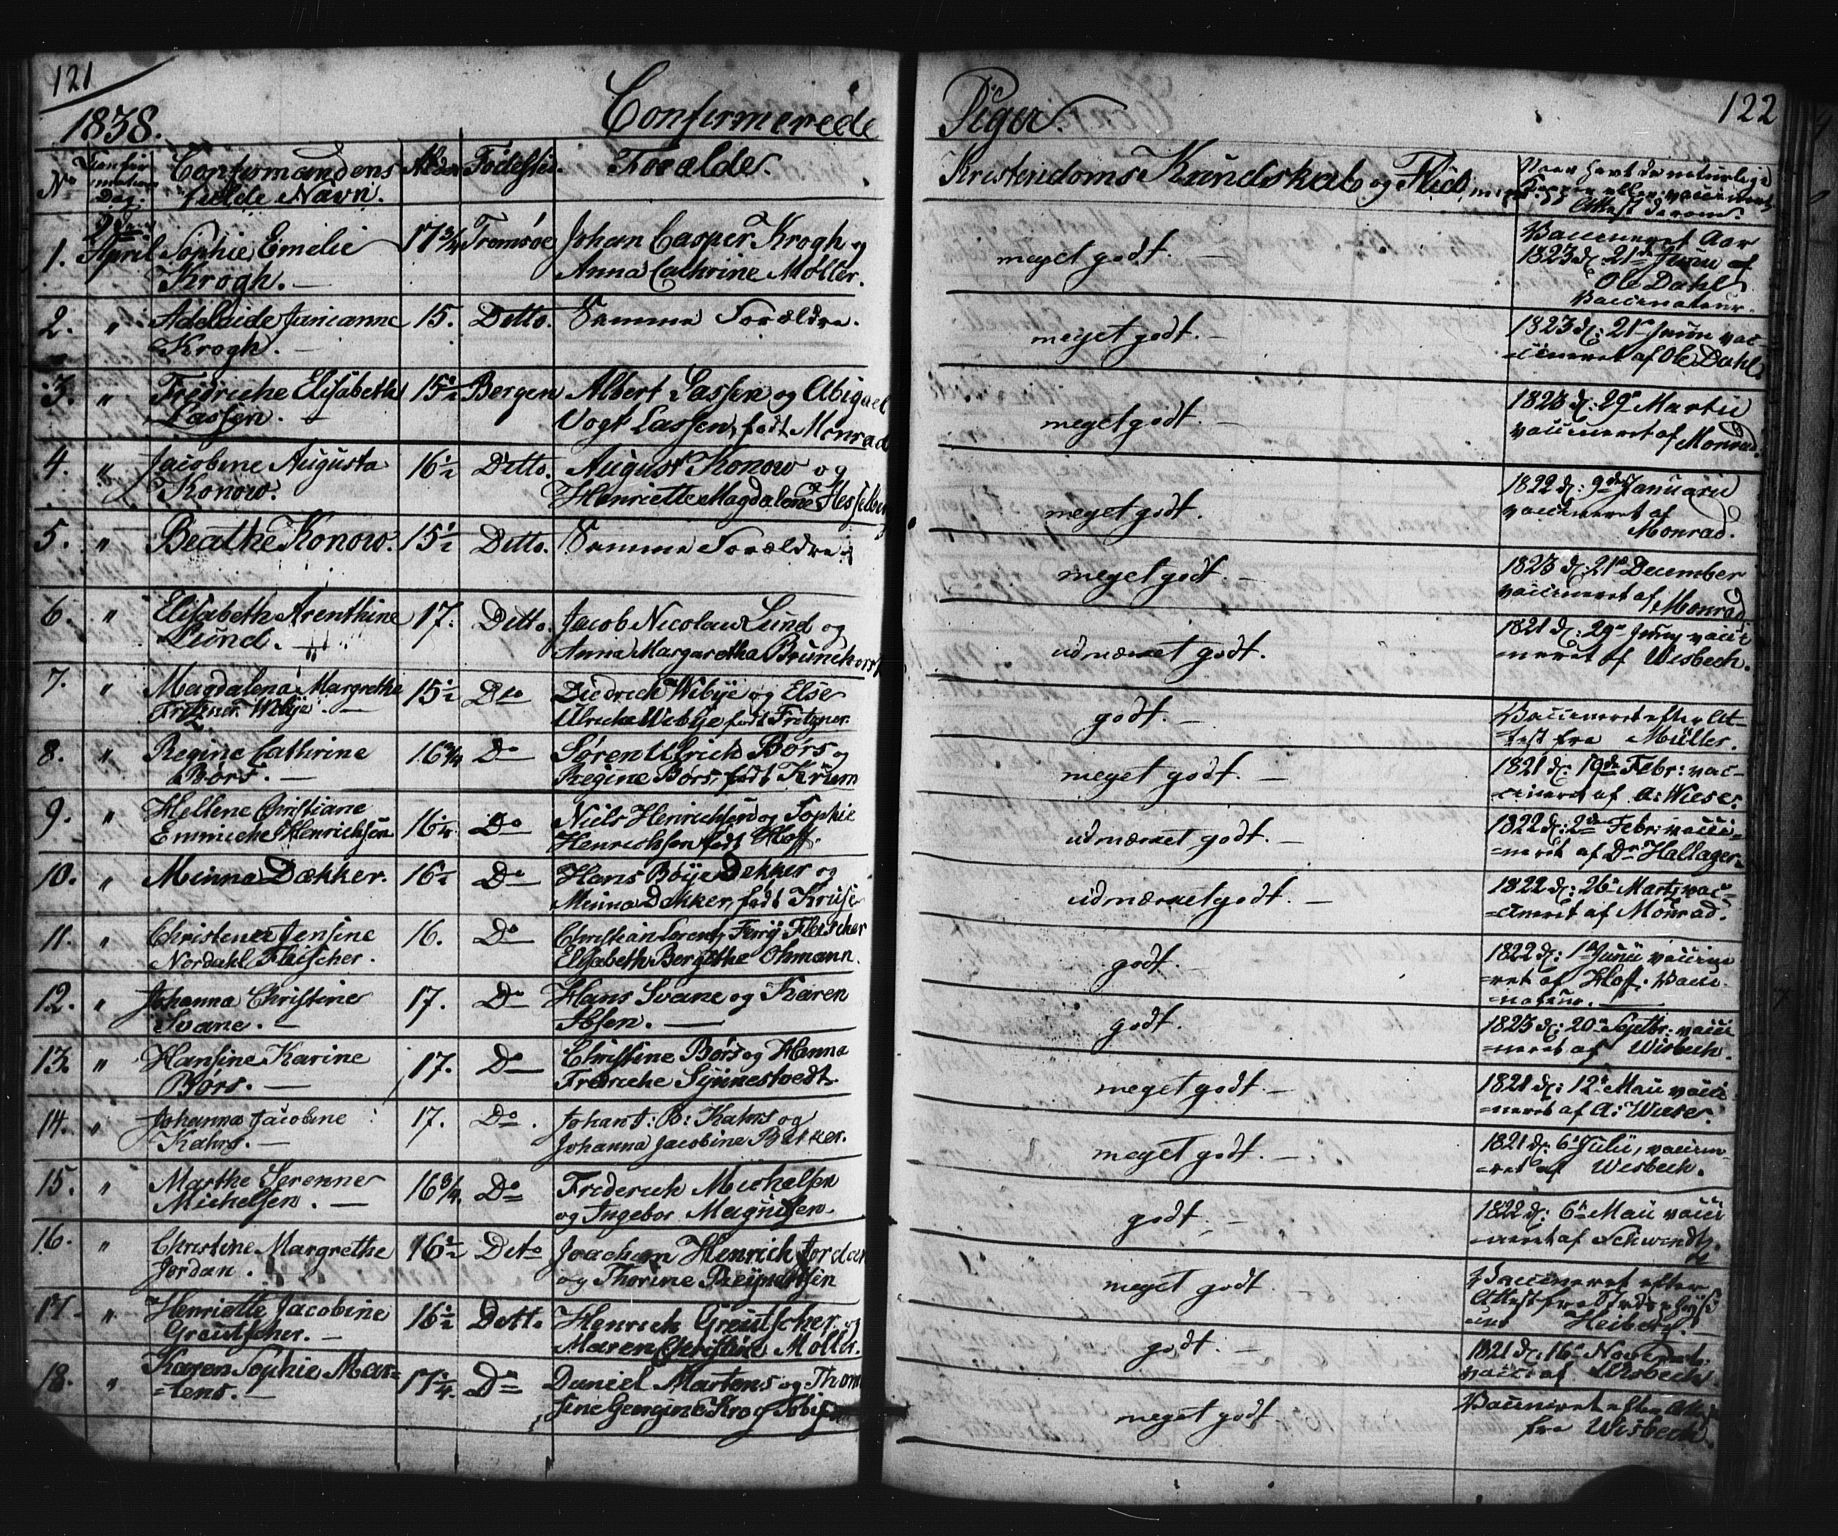 121
1838.
Confirmerede
Piger.
122
No
Confirmations Dag.
Confirmandens
fulde Navn.
Alder
Fødested.
Forælde.
Kristendoms Kundskab og Flid
1. April Sophie Emelie 17 3/4 Tromsøe Johan Casper Krogh og
Krogh. — Anna Cathrine Møller.
meget godt. —
Vaccineret Aar
1823 d: 21de Junii af
Ole Dahl
Vaccinateur.
2. " Adelaide Janianne 15. Ditto. Samme Forældre.
Krogh. —
meget godt. —
1823 d: 21 Junii vac-
=cineret af Ole Dahl.
3. " Fredriche Elisabeth 15 1/2 Bergen Albert Lassen og Abigael
Lassen. — Vogt Lassen, født Monrad
meget godt. —
1823 d: 29 Martii
vaccineret af Monrad.
4. " Jacobine Augusta 16 1/2 Ditto. August Konow og
Konow. Henriette Magdalene
meget godt. —
1822 d: 9de Januarii
vaccineret af
Monrad.
5. " Beathe Konow. 15 1/2 Ditto. Samme Forældre.
meget godt. —
1823 d: 21 December
vaccineret af Monrad
6. " Elisabeth Arenthine 17. Ditto. Jacob Nicolai Lund og
Lund. — Anna Margaretha Brunchorst
udmærket godt.
1821 d: 29 Juny vacci
=neret af Wisbech.
7. " Magdalena Margrethe 15 1/2 Dto Diedrich Wibye og Else
Fritzner Wibye. — Ulriche Wibye, født Fritzner.
godt. —
Vaccineret efter At-
test fra Müller.
8. " Regine Cathrine 16 3/4 Do Søren Ulrich Børs og
Børs. — Regine Børs, født Krum
meget godt. —
1821 d: 19de Febr: vac-
cineret af A: Wieser.
9. " Hellene Christiane 16 1/4 Do Niels Henrichsen og Sophie
Emmiche Henrichsen Henrichsen født Hoff.
udmærket godt.
1822 d: 2de Febr: vacci=
=neret af Dr Hallager.
10. " Minna Dækker. 16 1/2 Do Hans Bøye Dekker og
Minna Dekker, født Kruse
udmærket godt. —
1822 d: 26 Mart: vac-
=cineret af Monrad.
11. " Jensine 16. Do Christian Lorentz Fleischer
Nordahl Fleischer. Elisabeth Bergethe Ohmann.
godt. —
1822 d: 1 Junii vaccine
=ret af Hoff. Vacci-
=nateur.
12. " Johanna Christine 17. Do Hans Svane og Karen
Svane. — Ibsen. —
godt.
1823 d: 20 Septbr: vacci
=neret af Wisbech.
13. " Hansine Karine 17. Do Christine Børs og Hanna
Børs. — Fredriche Synnestvedt.
meget godt. —
1821 d: 12 Maii vacci
=neret af A: Wieser.
14. " Johanna Jacobine 17. Do. Johan J: B: Kahrs og
Kahrs. — Johanna Jacobine Bakker.
meget godt. —
1821 d: 6 Julii, vaccine-
=ret af Wisbech.
15. " Marthe Serenne 16 3/4 Do Friderich Michelsen
Michelsen. — og Ingebor Magnusen.
godt. —
1822 d: 6 Maii vacci
=neret af Schwindt.
16. " Christine Margrethe 16 1/2 Dito Joachim Henrich Jordan
Jordan. og Thorine Reijndtsen
meget godt. —
Vaccineret efter
Attest fra
Heiberg.
17. " Henriette Jacobine 16 1/2 Ditto Henrich Greutscher og
Greutscher. — Maren Christine Møller.
godt. —
1821 d: 16 Novembr:
vacci af Wisbech
18. " Karen Sophie Mar- 17 1/4 Do Daniel Martens og Thom
=tens. — sine Georgine Krog
meget godt
Vaccineret efter Attest
fra Wisbech.